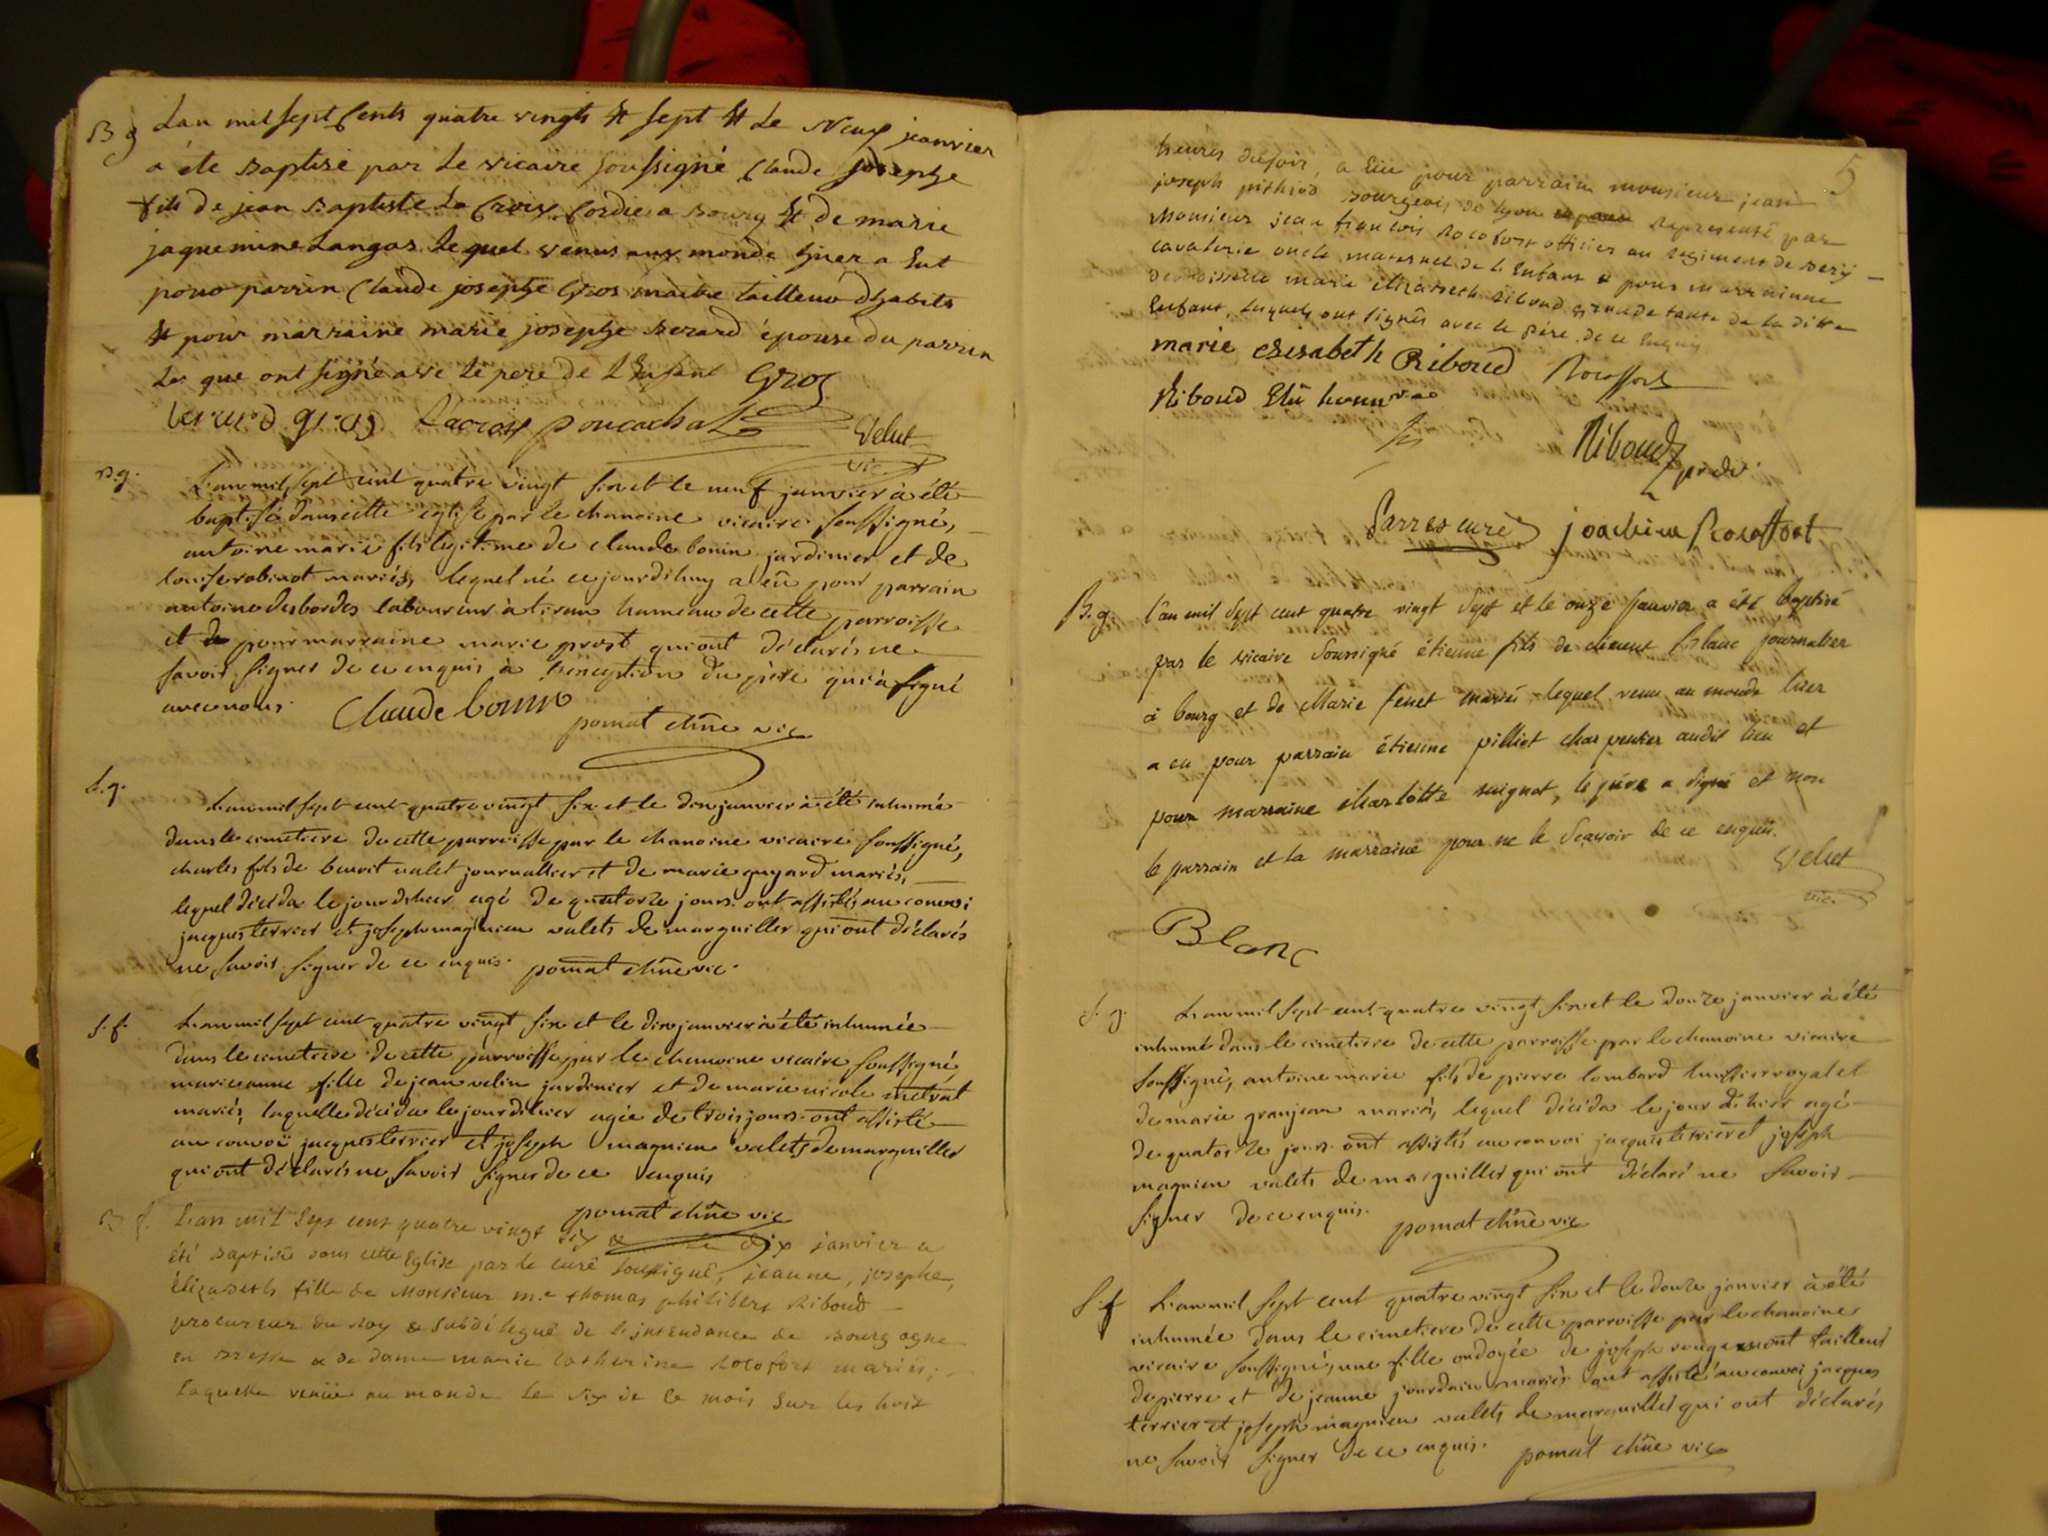 B g
Lan mil sept Cents quatre vingts & sept & Le Neuf jeanvier
a éte Baptisé par Le vicaire soussigné Claude josephe
fils de jean Baptiste La Croix Cordier a Bourg & de marie
jaquemine Langar Lequel venus aux monde hier a Eut
pour parrin Claude josephe Gros maitre tailleur dhabits
& pour marraine marie josephe Berard épouse du parrin
Les que ont signé avec Le pere de L Enfant Gros
berard gros Lacroix poncachat
Velut
vic
B.g.
L'an mil sept cent quatre vingt six et le neuf janvier à été
baptisé dans cette eglise par le chanoine vicaire soussigné,
antoine marie fils legitime de claude bonin jardinier et de
louise robinot mariés, lequel né ce jourdhuy a eû pour parrain
antoine desbordes laboureur à hameau de cette parroisse
et pour marraine marie prost qui ont déclarés ne
savoir signer de ce enquis à l'exception du père qui à signé
avec nous. Claude bonin
pomat chne vic
S.g.
L'an mil sept cent quatre vingt six et le dix janvier à été inhumé
dans le cimetiere de cette parroisse par le chanoine vicaire soussigné,
charles fils de benoit valet journallier et de marie guyard mariés,
lequel décéda le jour d'hier agé de quatorze jours. ont assistés au convoi
jacques terrier et joseph magnien valets de marguiller qui ont déclarés
ne savoir signer de ce enquis. pomat chne vic.
S.f.
L'an mil sept cent quatre vingt six et le dix janvier à été inhumée
dans le cimetiere de cette parroisse par le chanoine vicaire soussigné
marie anne fille de jean velin jardinier et de marie nicole metrat
mariés, laquelle décéda le jour d'hier agée de trois jours. ont assisté
au convoi jacques terrier et joseph magnien valets de marguiller
qui ont déclarés ne savoir signer de ce enquis
pomat chne vic
B f.
L'an mil sept cent quatre vingt six & le dix janvier a
été Baptisée dans cette Eglise par le curé soussigné, jeanne, josephe,
élizabeth fille de Monsieur me thomas philibert Riboud
procureur du Roy & subdélegué de l'intendance de Bourgogne
en Bresse & de dame marie Catherine Rocofort mariés;
laquelle venüe au monde le dix de ce mois sur les huit
5
heures du soir, a Eue pour parrain monsieur jean
joseph pithiod Bourgeois de Lyon representé par
Monsieur jean francois Rocofort officier au regiment de Bery
cavalerie oncle maternel de l'Enfant & pour marraine
demoiselle marie elizabeth Riboud grande tante de la ditte
Enfant, lesquels ont signés avec le père de ce Enquis
marie elisabeth Riboud Rocoffort
Riboud
Riboud
Sarres curé joachim Rocoffort
B.g.
l'an mil Sept cent quatre vingt Sept et le onze Janvier a été baptisé
par le vicaire Soussigné étienne fils de clement blanc journalier
à bourg et de Marie fenet mariés lequel venu au monde hier
a eu pour parrain étienne pilliot charpentier audit lieu et
pour marraine charlotte muignot, le père a signé et non
le parrain et la marraine pour ne le Scavoir de ce enquis.
Velut
vic.
Blanc
S. g.
L'an mil sept cent quatre vingt six et le douze janvier à été
inhumé dans le cimetiere de cette parroisse par le chanoine vicaire
soussigné, antoine marie fils de pierre lombard huissier royal et
de marie granjean mariés, lequel décéda le jour d'hier agé
de quatorze jours. ont assistés au convoi jacques terrier et joseph
magnien valets de marguiller qui ont déclaré ne savoir
signer de ce enquis. pomat chne vic
S.f
L'an mil sept cent quatre vingt six et le douze janvier à été
inhumée dans le cimetiere de cette parroisse par le chanoine
vicaire soussigné, une fille ondoyée de joseph rougemont tailleur
de pierre et de jeanne jourdain mariés ont assisté au convoi jacques
terrier et joseph magnien valets de marguiller qui ont déclarés
ne savoir signer de ce enquis. pomat chne vic